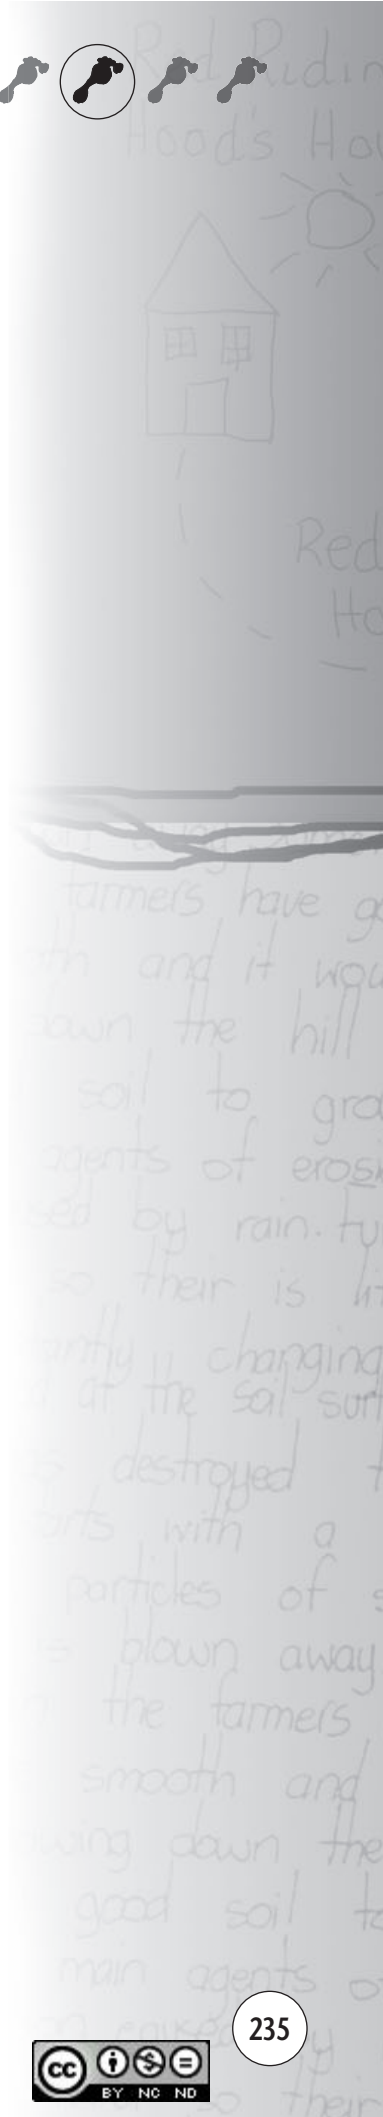 Red Ridin
Hood's Hou
Red
Ho
farmers have go
and it wou
down the hill
soil to gro
agents of erosi
by rain. tu
so their is lit
changing
at the soil surf
destroyed t
with a
particles of s
blown away
the farmers
smooth and
down the
good soil to
main agents o
by
so their
235
cc
BY NC ND